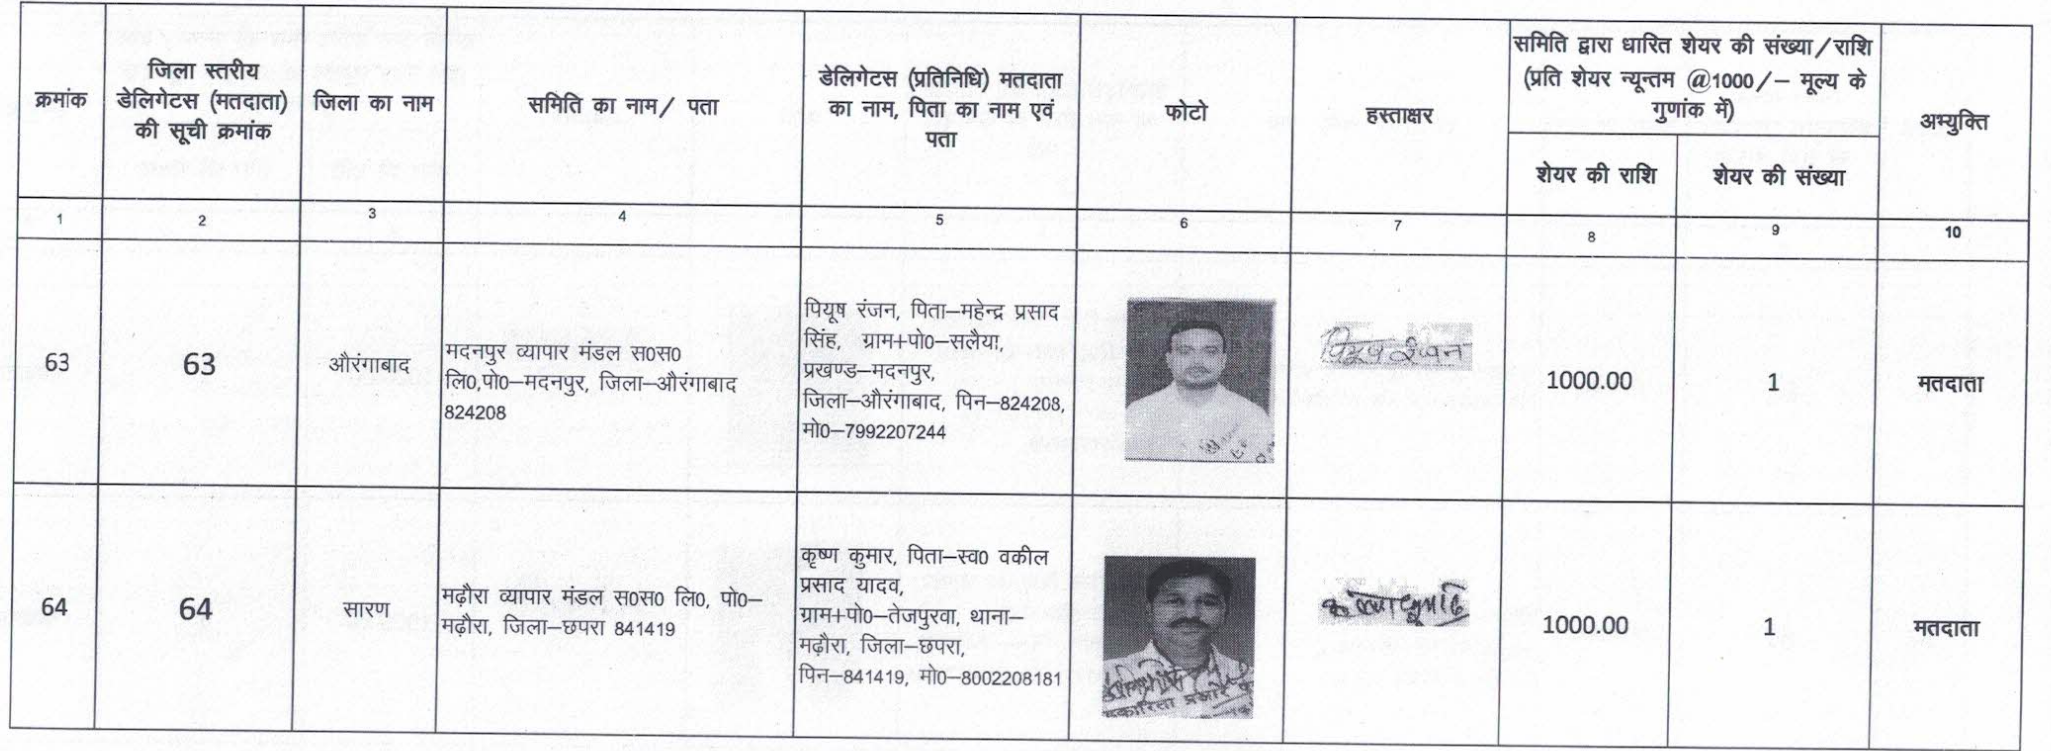 क्रमांक
जिला स्तरीय
डेलिगेटस (मतदाता)
की सूची क्रमांक
जिला का नाम
समिति का नाम/ पता
डेलिगेटस (प्रतिनिधि) मतदाता
का नाम, पिता का नाम एवं
पता
फोटो
हस्ताक्षर
समिति द्वारा धारित शेयर की संख्या/राशि
(प्रति शेयर न्यून्तम @1000/– मूल्य के
गुणांक में)
शेयर की राशि
शेयर की संख्या
अभ्युक्ति
1
2
3
4
5
6
7
8
9
10
63
63
औरंगाबाद
मदनपुर व्यापार मंडल स0स0
लि0,पो0–मदनपुर, जिला–औरंगाबाद
824208
पियूष रंजन, पिता–महेन्द्र प्रसाद
सिंह, ग्राम+पो0–सलैया,
प्रखण्ड–मदनपुर,
जिला–औरंगाबाद, पिन–824208,
मो0–7992207244
1000.00
1
मतदाता
64
64
सारण
मढ़ौरा व्यापार मंडल स0स0 लि0, पो0–
मढ़ौरा, जिला–छपरा 841419
कृष्ण कुमार, पिता–स्व0 वकील
प्रसाद यादव,
ग्राम+पो0–तेजपुरवा, थाना–
मढ़ौरा, जिला–छपरा,
पिन–841419, मो0–8002208181
1000.00
1
मतदाता